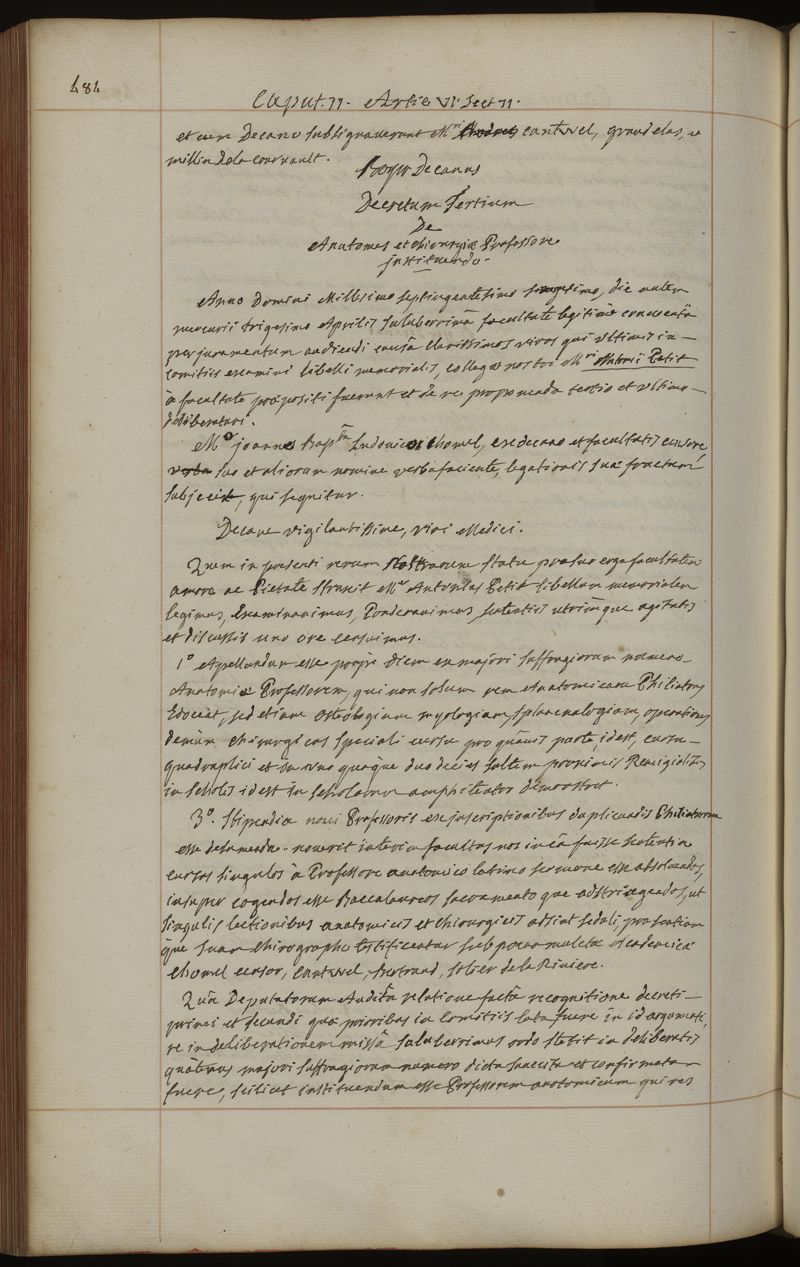 484
Caput. 11. Artic VI Sect 11.
et cum Decano subsignaverunt M.ri cantwel, grandelas, e
millin de la courvault.
Boyer Decanus
Decretum Tertium
De
Anatomes et chirurgiæ Professore
instituendo.
Anno Domini Millesimo septingentesimo die autem
mercurii trigesimo Aprilis saluberrima facultate legitime conventa
per juramentum audiendi causâ clarissimos viros qui ultimis in
comitiis examini libelli memorialis, collegæ nostri M.ri Antonii Petit
à facultate præpositi fuerunt et de re proponenda tertio et ultimo
deliberatura.
M.o joanne Bap.ta Ludovico chomel, exdecano et facultatis censore,
suo et aliorum nomine verba faciente, legationis suæ fructum
subjecit, qui sequitur.
Decane vigilantissime, viri Medici.
Quem in præsenti rerum Nostrarum statu pro suo erga facultatem
amore ac Pietate struxit M.r Antonius Petit libellum memorialem
legimus, Examinavimus, Ponderavimus, sententiis utrimque agitatis
et discussis uno ore censuimus.
1.o Apellandum esse propè diem ex majori suffragiorum numero
Anatomiæ Professorem, qui non solum rem Anatomicam Philiatros
Edoceat, sed etiam osteologiam myologiam splancnologiam, operationes
demum chirurgicas speciali cursu pro quavis parte, id est, cursu
quadruplici et in uno quoque duodecies saltem proximis Remigialibus
in scholis id est in scholarum amphiteatro demonstret.
3.o Stipendia novi Professoris ex inscriptionibus duplicandis Philiatrorum
esse desumenda. noverit interim facultas nos in eâ fuisse sententia
cursus singulos à Professore anatomico latino sermone esse absolvendos,
insuper cogendos esse Baccalaureos sacramento que adstringendos, ut
singulis lectionibus anatomicis et chirurgicis adsint seduli, præsentiam
que suam chirographo testificentur sub poena mulctæ academicæ
chomel censor, Cantwel, Bertrand, solier de la Riviere.
Quâ Deputatorum Auditâ relatione factâ recognitione decreti
primi et secundi quæ prioribus in comitiis lata fuere in id argumenti,
re in deliberationem missâ saluberrimus ordo stetit in deliberatis
quatenus majori suffragiorum numero dicta sancita et confirmata
fuere, scilicet instituendum esse Professorem anatomicum qui res